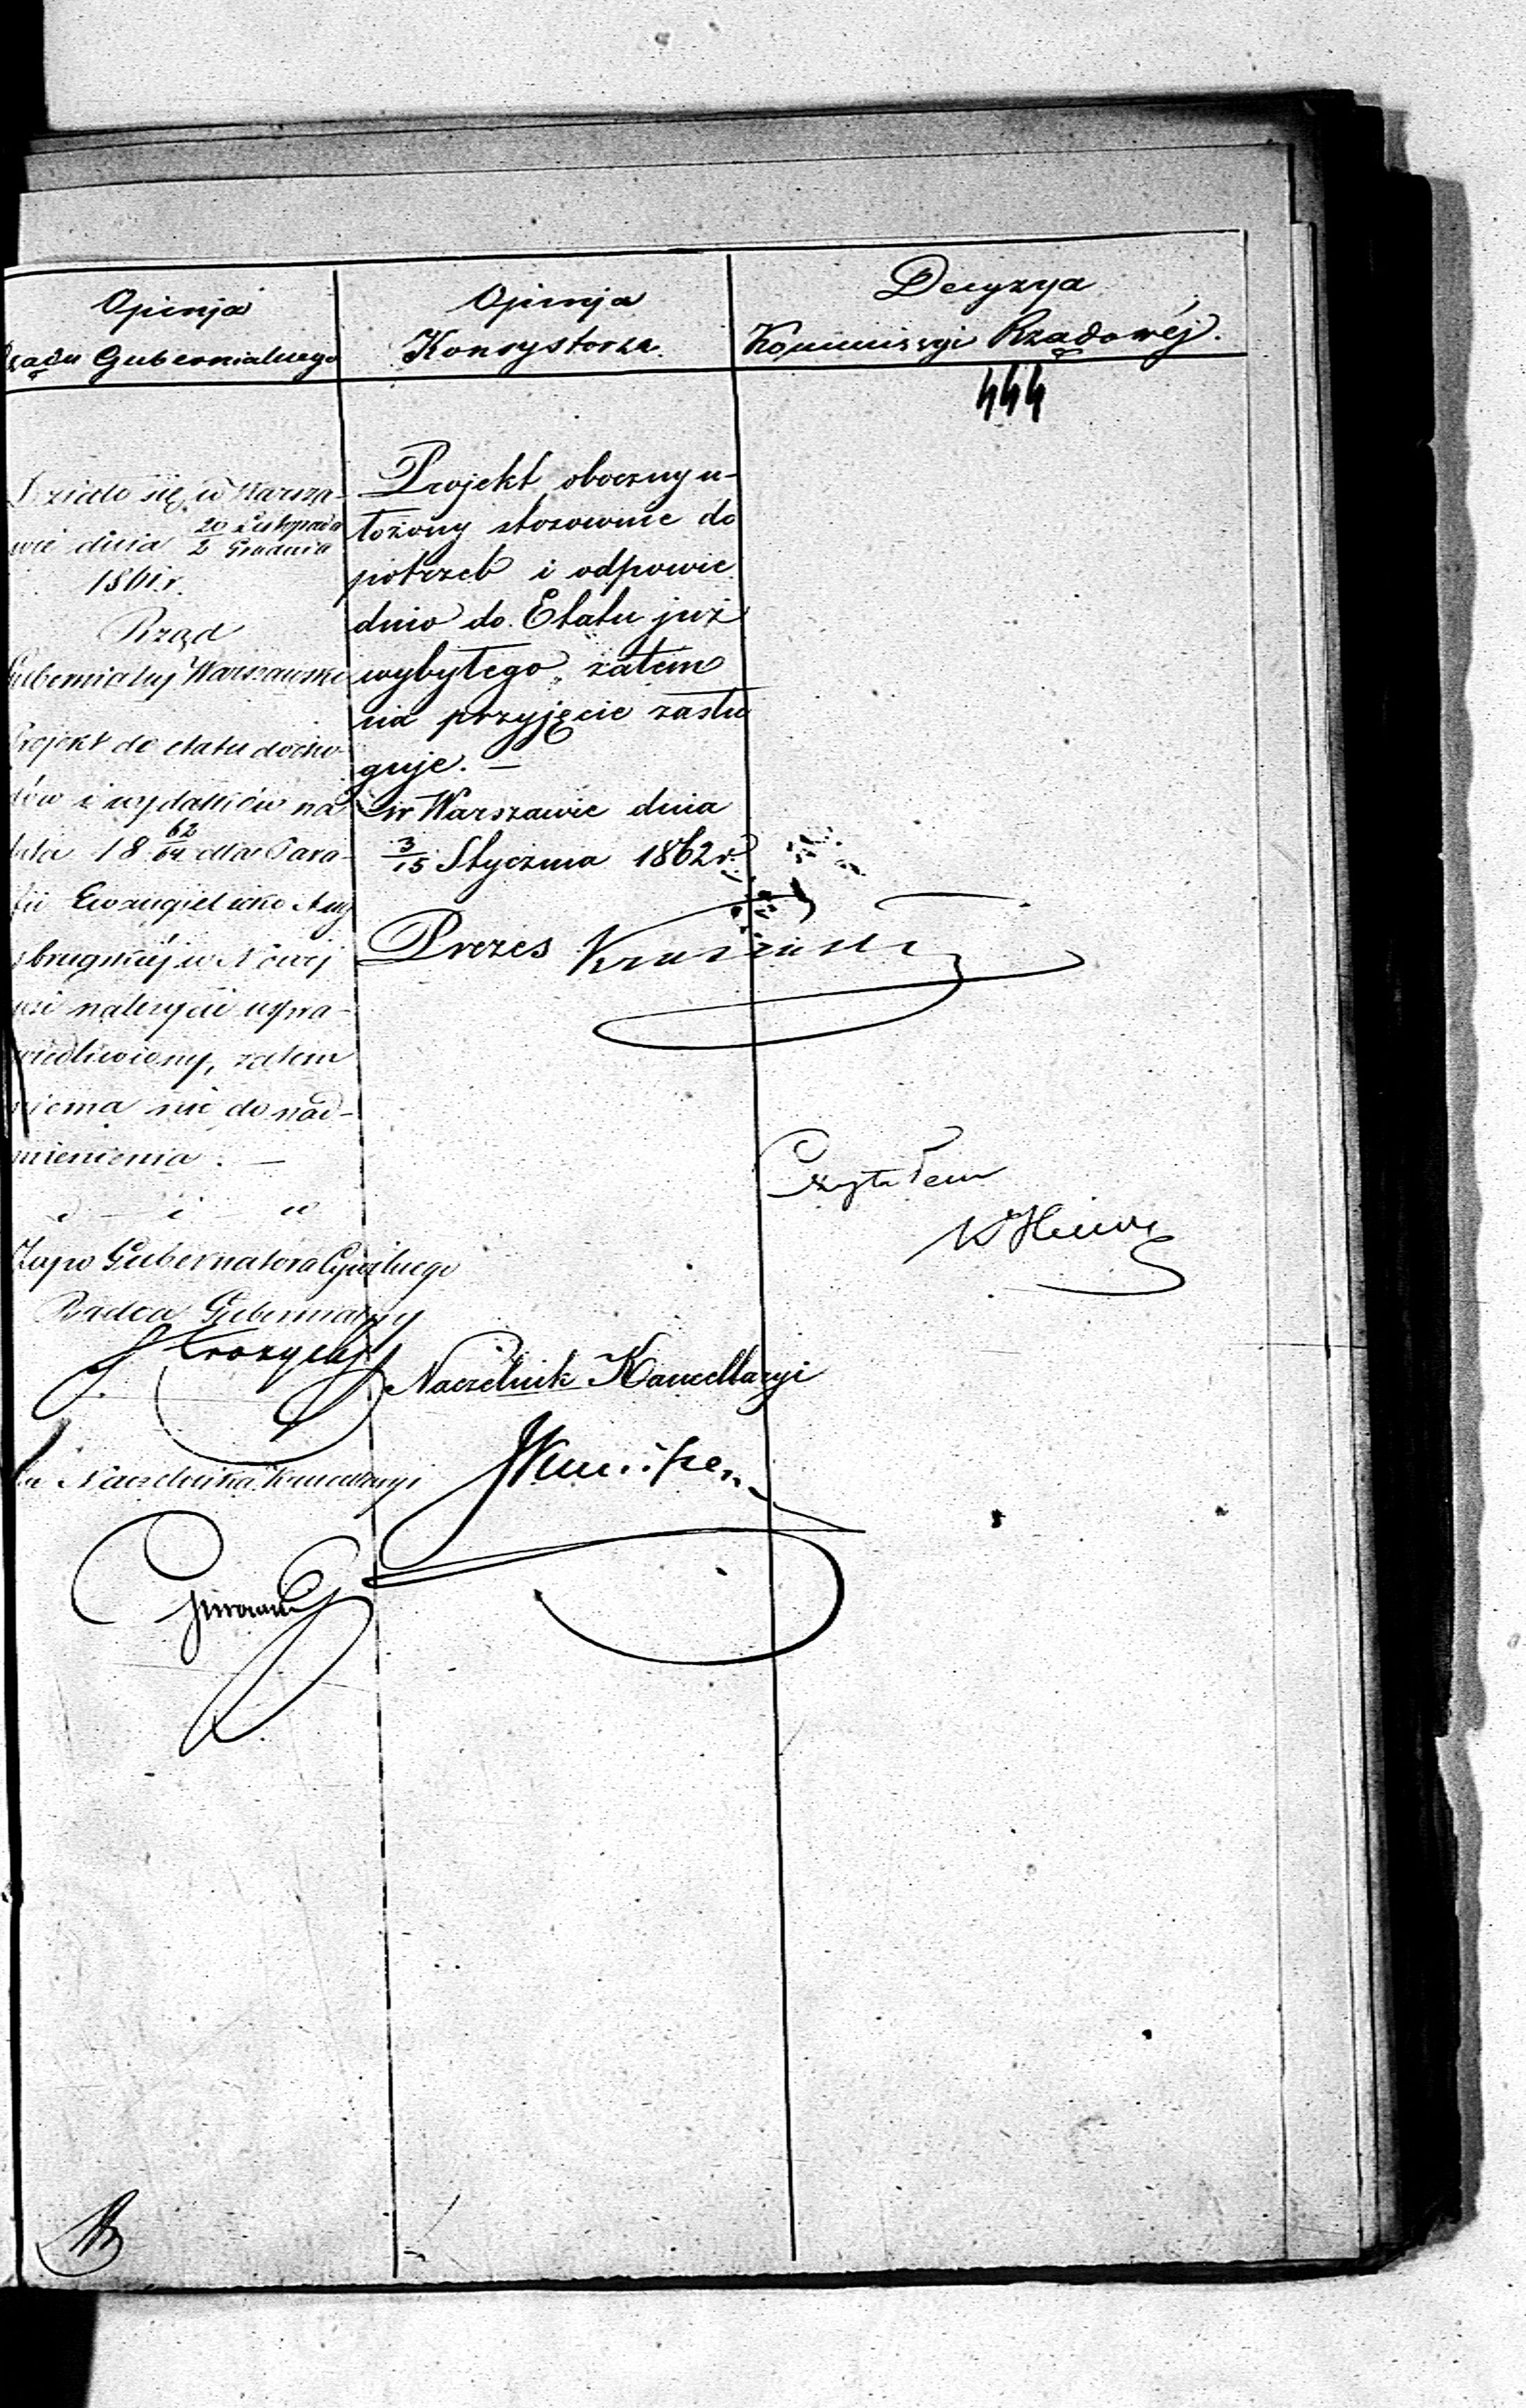 Opinja
Rządu Gubernialnego
Opinja
Konsystorza.
Decyzya
Kommissyi Rządowéj.
444
Działo się w Warsza-
wie dnia 20 Listopada / 2 Grudnia
1861 r.
Rząd
Gubernialny Warszawski
Projekt do etatu docho-
dów i wydatków na
lata 18 62/64 dla Para-
fii Ewangielicko Aug
sbrugskiéj w Nowej
wsi należycie uspra-
wiedliwiony, zatem
niema nic do nad-
mienienia. —
Zapo Gubernatora Cywilnego
Radca Gubernialny
Naczelnika Kancellaryi
Projekt oboczny u-
łożony stosownie do
potrzeb i odpowie
dnio do Etatu już
wybyłego, zatém
na przyjęcie zasłu
guje. —
w Warszawie dnia
3/15 Stycznia 1862 r.
Prezes
Naczelnik Kancellaryi
Czytałem